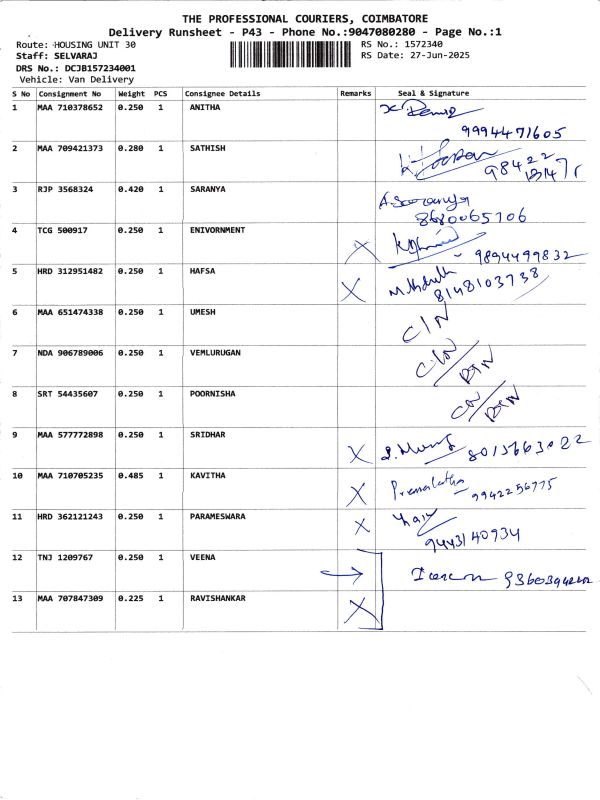 THE PROFESSIONAL COURIERS, COIMBATORE
Delivery Runsheet - P43 - Phone No.:9047080280 - Page No.:1
Route: HOUSING UNIT 30 RS No.: 1572340
Staff: SELVARAJ RS Date: 27-Jun-2025
DRS No.: DCJB157234001
Vehicle: Van Delivery
S No Consignment No Weight PCS Consignee Details Remarks Seal & Signature
1 MAA 710378652 0.250 1 ANITHA
9994471605
2 MAA 709421373 0.280 1 SATHISH
98422
3 RJP 3568324 0.420 1 SARANYA A. Saranya
8680065706
4 TCG 500917 0.250 1 ENIVORNMENT X
9894499832
5 HRD 312951482 0.250 1 HAFSA X
8148103738
6 MAA 651474338 0.250 1 UMESH C/N
7 NDA 906789006 0.250 1 VEMLURUGAN C/N/RTN
8 SRT 54435607 0.250 1 POORNISHA CN/RTN
9 MAA 577772898 0.250 1 SRIDHAR X
10 MAA 710705235 0.485 1 KAVITHA X Premalatha
9942256775
11 HRD 362121243 0.250 1 PARAMESWARA X
9443140934
12 TNJ 1209767 0.250 1 VEENA
13 MAA 707847309 0.225 1 RAVISHANKAR X